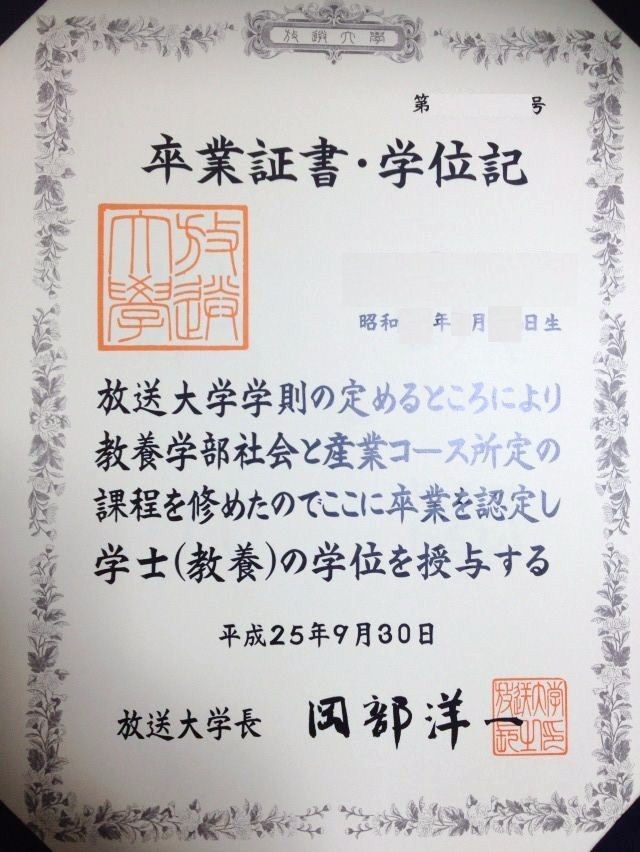 放送大學
第 号
卒業証書・学位記
放送大學
昭和 年 月 日生
放送大学学則の定めるところにより
教養学部社会と産業コース所定の
課程を修めたのでここに卒業を認定し
学士(教養)の学位を授与する
平成25年9月30日
放送大学長 岡部洋一